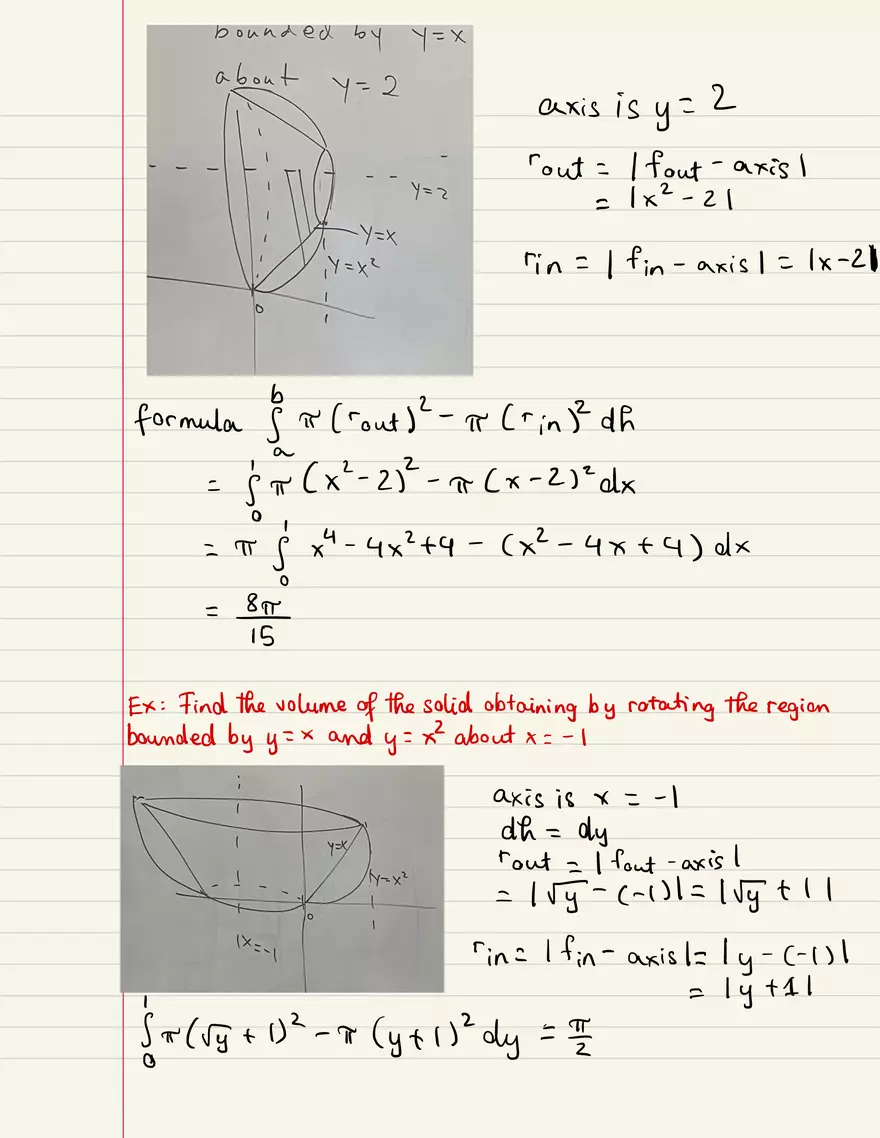 bounded by y=x
about y=2
y=2
y=x
y=x²
0
axis is y=2
r_out = |f_out - axis|
= |x²-2|
r_in = |f_in - axis| = |x-2|
formula ∫_a^b π(r_out)² - π(r_in)² dh
= ∫_0^1 π(x²-2)² - π(x-2)² dx
= π ∫_0^1 x⁴-4x²+4 - (x²-4x+4) dx
= 8π/15
Ex: Find the volume of the solid obtaining by rotating the region
bounded by y=x and y=x² about x=-1
y=x
y=x²
0
x=-1
axis is x=-1
dh = dy
r_out = |f_out - axis|
= |√y - (-1)| = |√y + 1|
r_in = |f_in - axis| = |y-(-1)|
= |y+1|
∫_0^1 π(√y+1)² - π(y+1)² dy = π/2